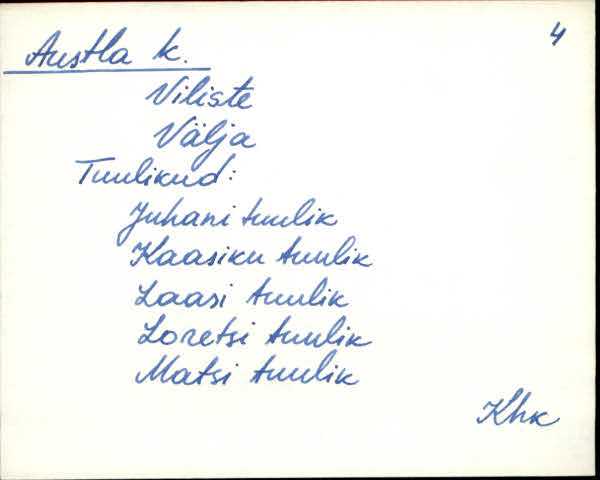 4
Austla k.
Viliste
Välja
Tuulikud:
Juhani tuulik
Kaasiku tuulik
Laasi tuulik
Loretsi tuulik
Matsi tuulik
Khk